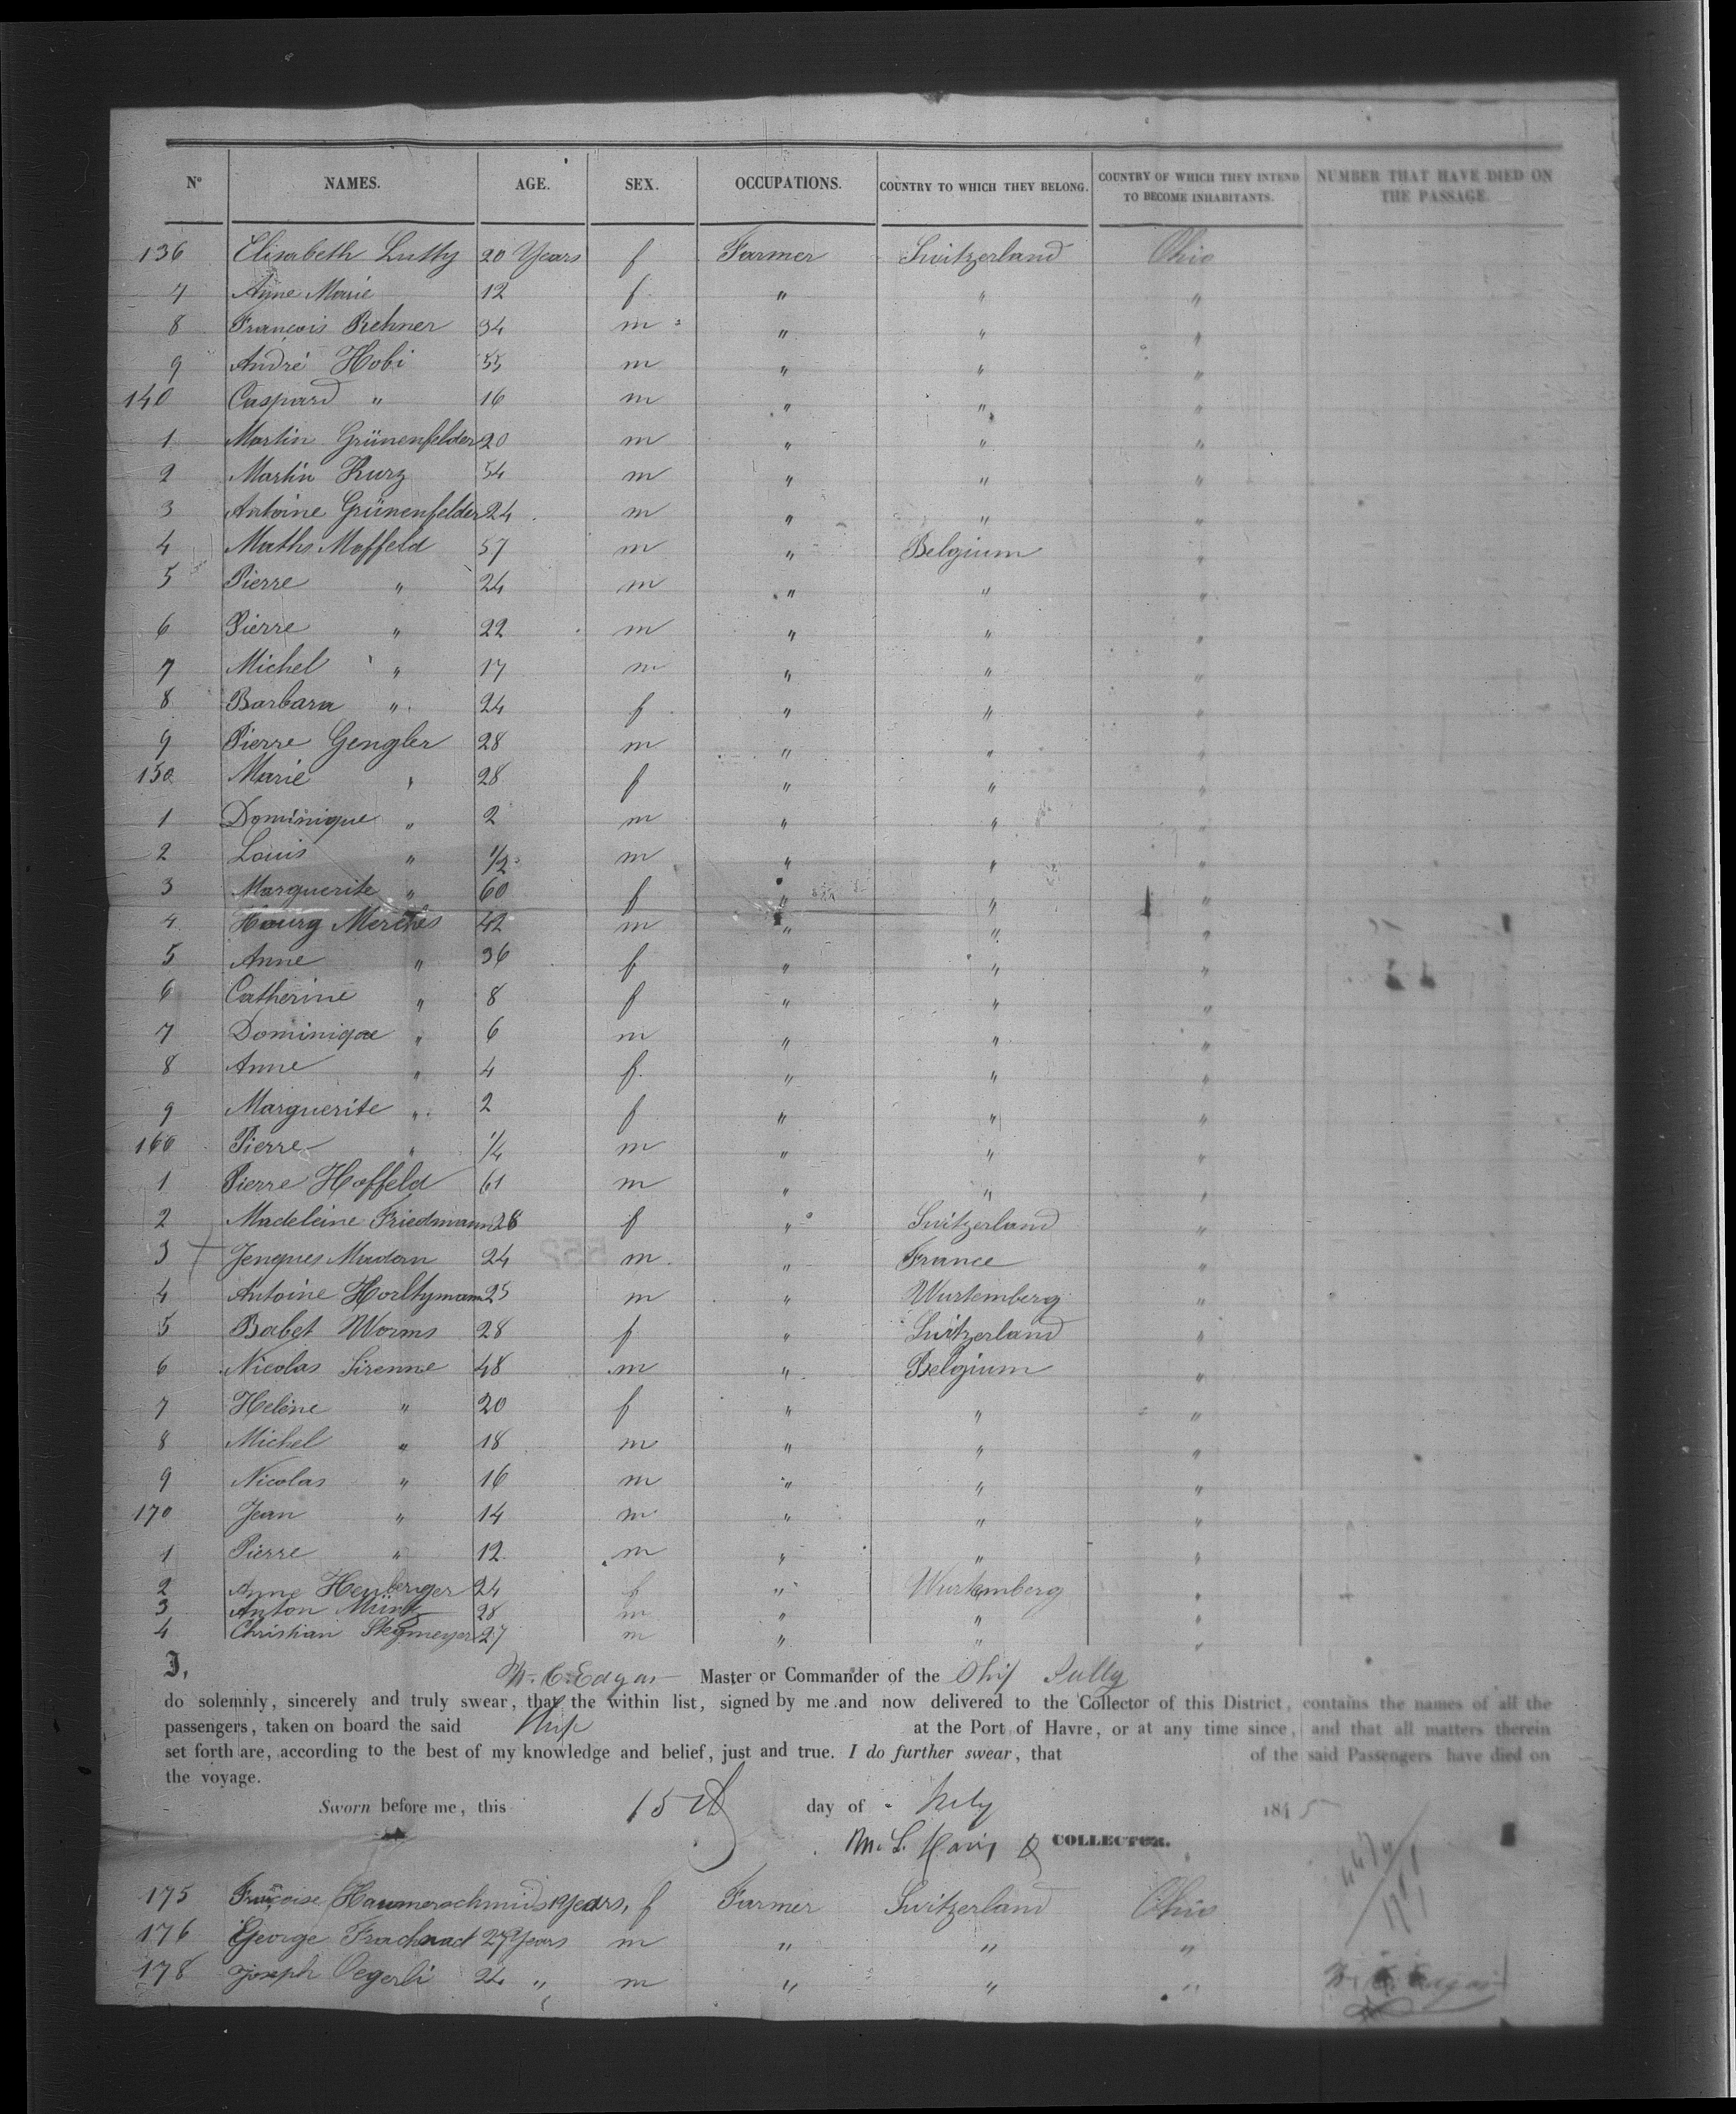 Nº NAMES. AGE. SEX. OCCUPATIONS. COUNTRY TO WHICH THEY BELONG. COUNTRY OF WHICH THEY INTEND TO BECOME INHABITANTS. NUMBER THAT HAVE DIED ON THE PASSAGE.
136 Elisabeth Lutty 20 Years f Farmer Switzerland Ohio
7 Anne Marie 12 f " " "
8 François Rehner 34 m " " "
9 André Hobi 55 m " " "
140 Caspard " 16 m " " "
1 Martin Grünenfelder 20 m " " "
2 Martin Kurz 54 m " " "
3 Antoine Grünenfelder 24 m " " "
4 Maths Moffeld 57 m " Belgium "
5 Pierre " 24 m " " "
6 Pierre " 22 m " " "
7 Michel " 17 m " " "
8 Barbara " 24 f " " "
9 Pierre Gengler 28 m " " "
150 Marie " 28 f " " "
1 Dominique " 2 m " " "
2 Louis " 1/2 m " " "
3 Marguerite " 60 f " " "
4 Merches 42 m " " "
5 Anne " 36 f " " "
6 Catherine " 8 f " " "
7 Dominique " 6 m " " "
8 Anne " 4 f " " "
9 Marguerite " 2 f " " "
160 Pierre " 1/4 m " " "
1 Pierre Hoffeld 61 m " " "
2 Madeleine Friedmann 28 f " Switzerland "
3 24 m " France "
4 Antoine 25 m " Wurtemberg "
5 Babet Worms 28 f " Switzerland "
6 Nicolas Sirenne 48 m " Belgium "
7 Helène " 20 f " " "
8 Michel " 18 m " " "
9 Nicolas " 16 m " " "
170 Jean " 14 m " " "
1 Pierre " 12 m " " "
2 Anne Heuberger 24 f " Wurtemberg "
3 Anton 28 m " " "
4 Christian Stegmeyer 27 m " " "
I, W. C. Edgar Master or Commander of the Ship Sully
do solemnly, sincerely and truly swear, that the within list, signed by me and now delivered to the Collector of this District, contains the names of all the
passengers, taken on board the said Ship at the Port of Havre, or at any time since, and that all matters therein
set forth are, according to the best of my knowledge and belief, just and true. I do further swear, that of the said Passengers have died on
the voyage.
Sworn before me, this 15th day of July 1845
COLLECTOR.
175 Françoise 19 years, f Farmer Switzerland Ohio
176 George 27 Years m " " "
178 Joseph Oegerli 24 " m " " "
W. C. Edgar